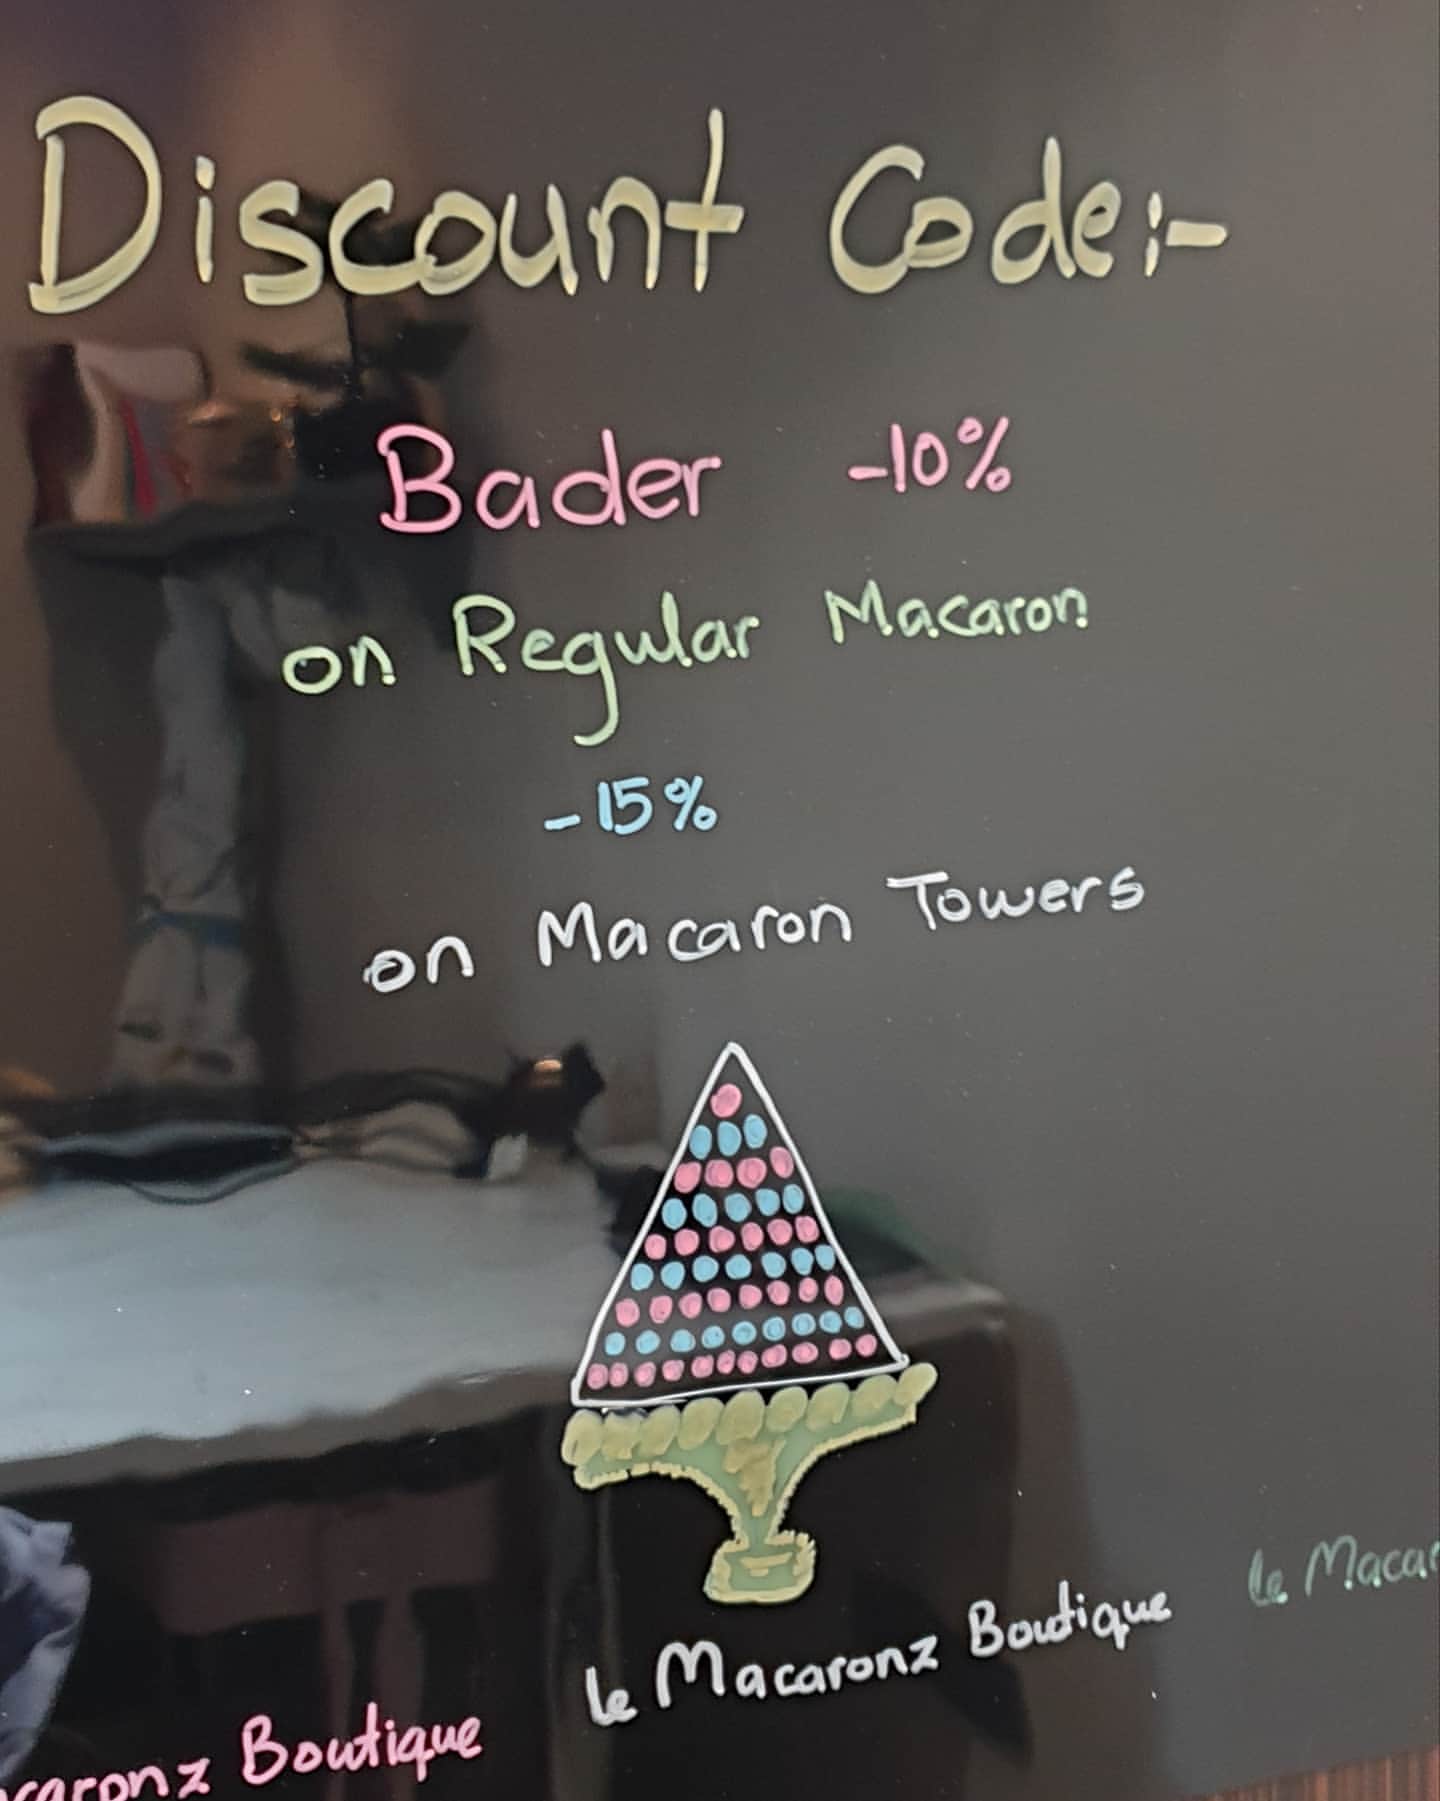 Discount Code:-
Bader -10%
on Regular Macaron
-15%
on Macaron Towers
le Macaronz Boutique
Boutique
le